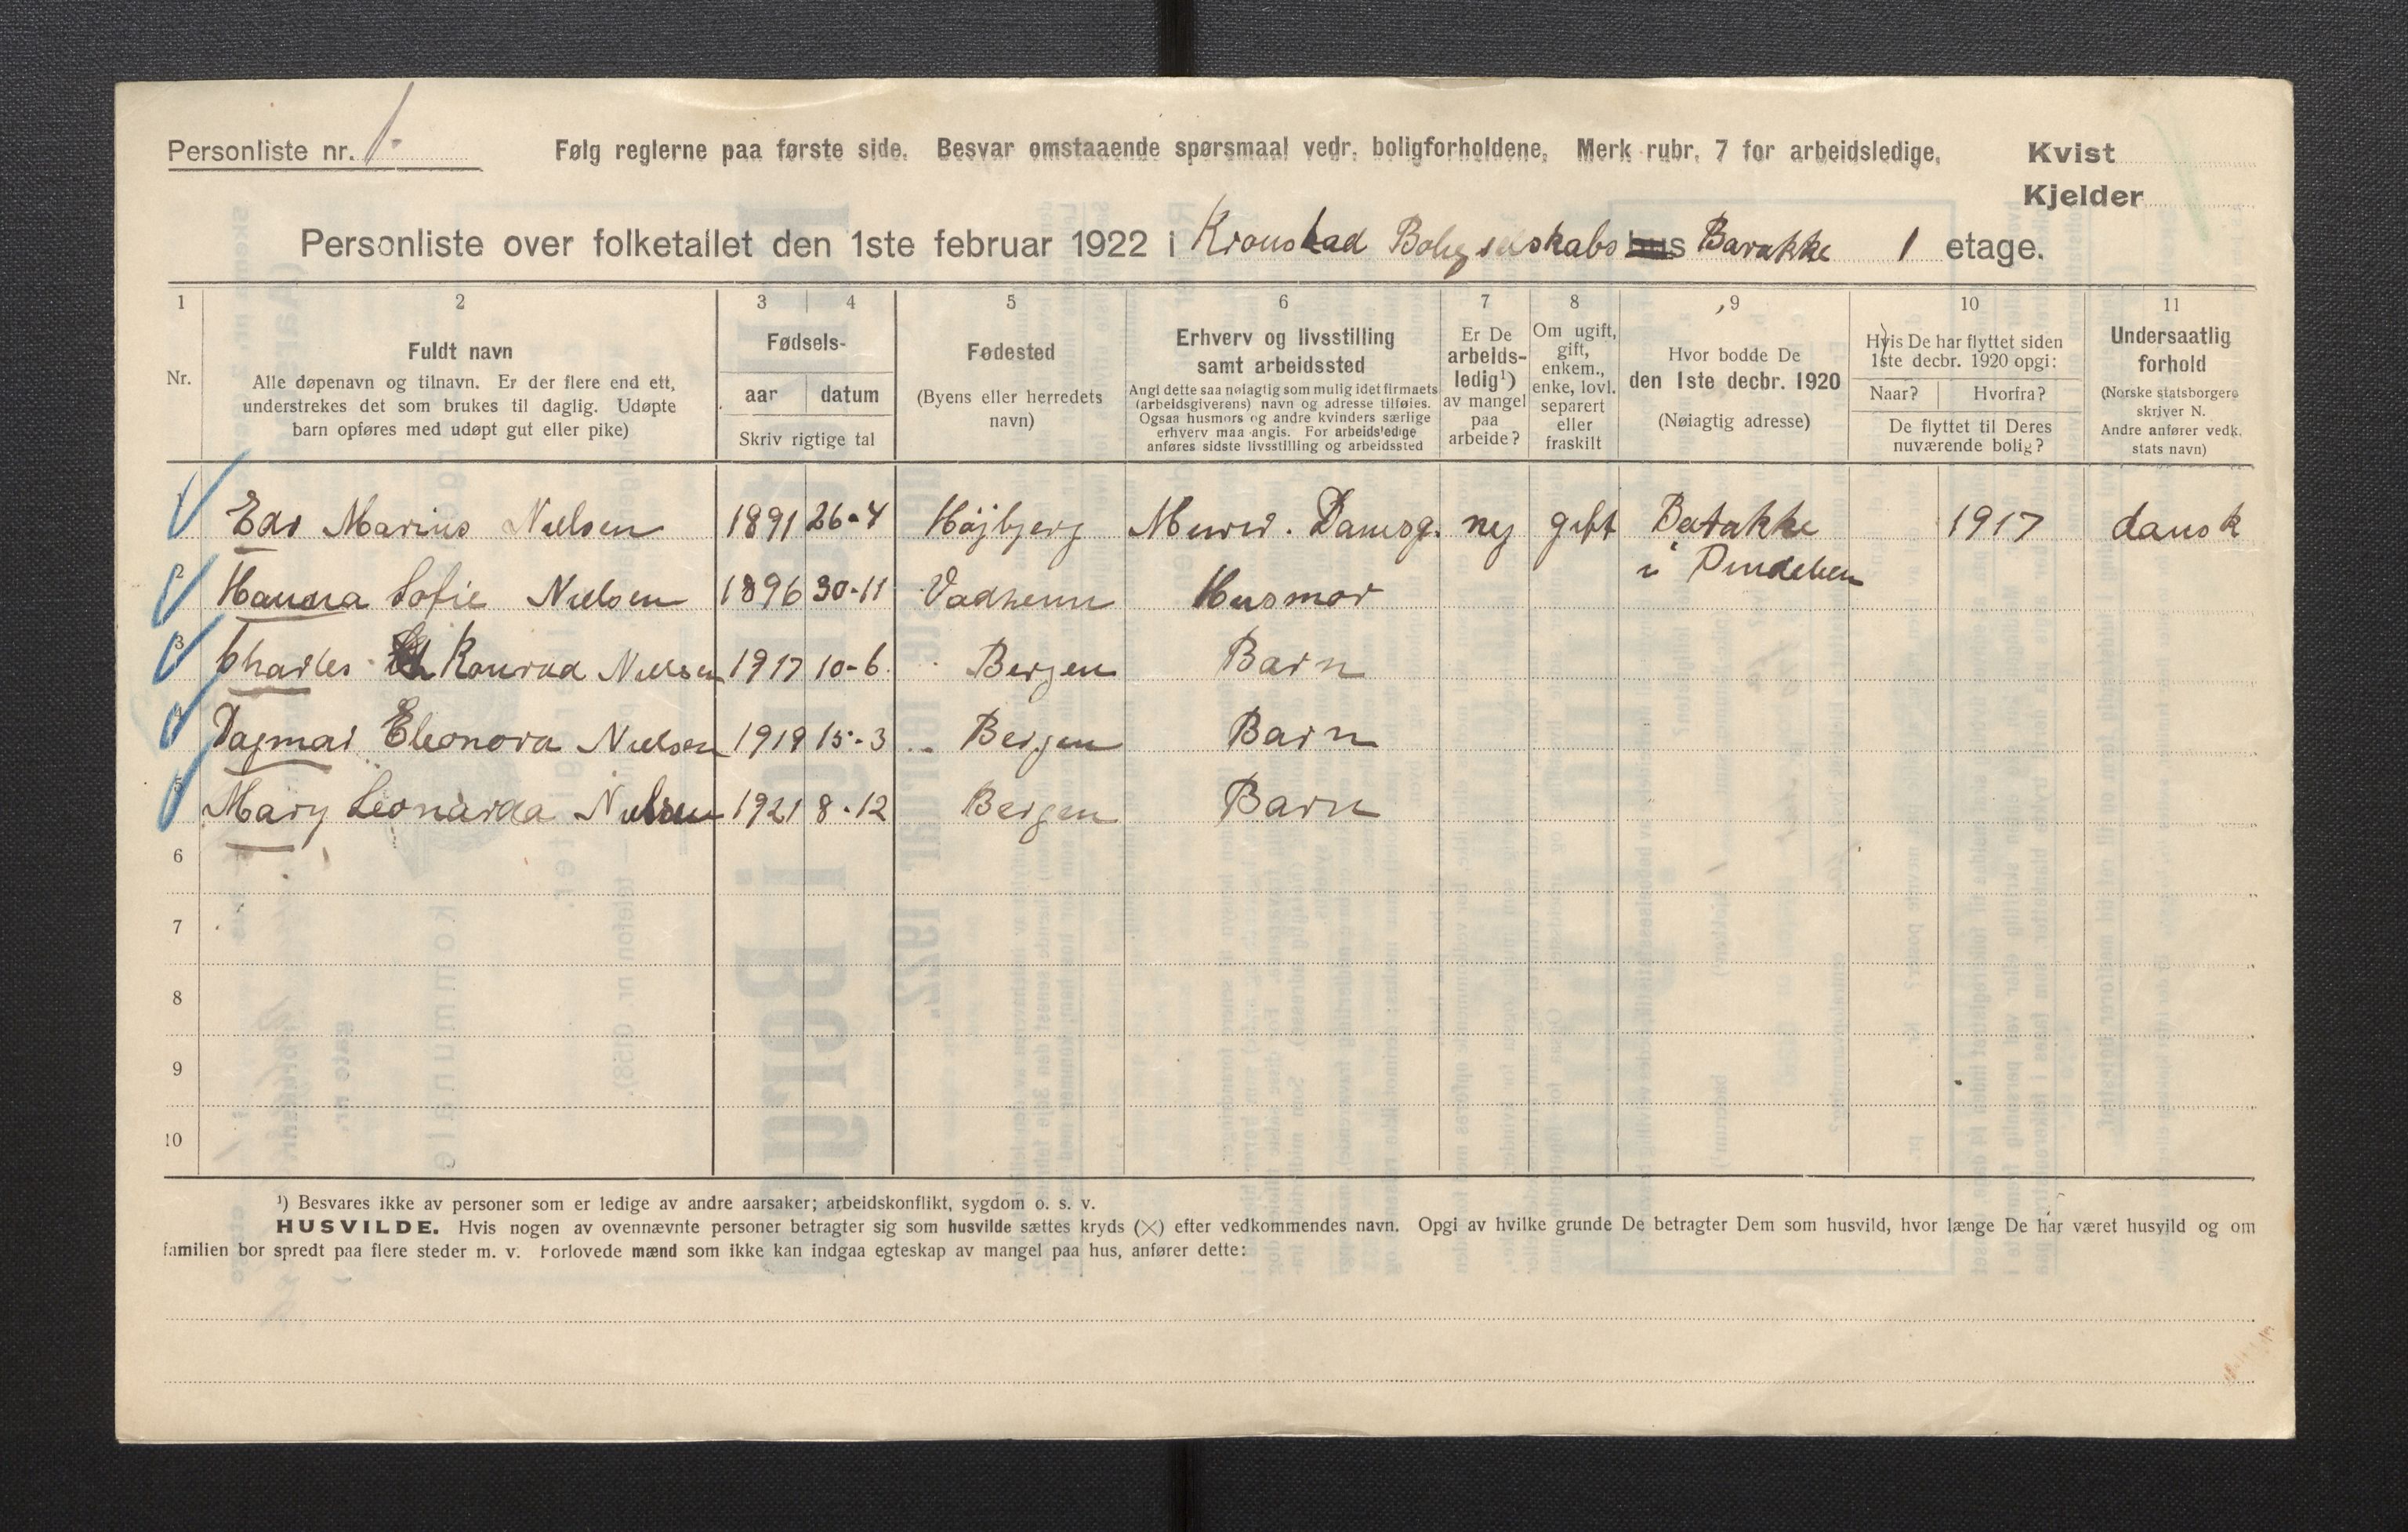 Personliste nr. 1. Følg reglerne paa første side. Besvar omstaaende spørsmaal vedr. boligforholdene. Merk rubr. 7 for arbeidsledige. Kvist
Kjelder
Personliste over folketallet den 1ste februar 1922 i Kronstad hus Barakke 1 etage.
1 2 3 4 5 6 7 8 9 10 11
Nr.
Fuldt navn
Alle døpenavn og tilnavn. Er der flere end ett,
understrekes det som brukes til daglig. Udøpte
barn opføres med udøpt gut eller pike)
Fødsels-
aar datum
Skriv rigtige tal
Fødested
(Byens eller herredets
navn)
Erhverv og livsstilling
samt arbeidssted
Angi dette saa nøiagtig som mulig idet firmaets
(arbeidsgiverens) navn og adresse tilføies.
Ogsaa husmors og andre kvinders særlige
erhverv maa angis. For arbeidsledige
anføres sidste livsstilling og arbeidssted
Er De
arbeids-
ledig¹)
av mangel
paa
arbeide?
Om ugift,
gift,
enkem.,
enke, lovl.
separert
eller
fraskilt
Hvor bodde De
den 1ste decbr. 1920
(Nøiagtig adresse)
Hvis De har flyttet siden
1ste decbr. 1920 opgi:
Naar? Hvorfra?
De flyttet til Deres
nuværende bolig?
Undersaatlig
forhold
(Norske statsborgere
skriver N.
Andre anfører vedk.
stats navn)
1 Marius Nielsen 1891 26-4 Højbjerg Murer. Damsg. nej gift Barakke 1917 dansk
i
2 Hanna Sofie Nielsen 1896 30-11 Vadheim Husmor
3 Charles Konrad Nielsen 1917 10-6 Bergen Barn
4 Dagmar Eleonora Nielsen 1919 15-3 Bergen Barn
5 Mary Leonarda Nielsen 1921 8-12 Bergen Barn
6
7
8
9
10
¹) Besvares ikke av personer som er ledige av andre aarsaker; arbeidskonflikt, sygdom o. s. v.
HUSVILDE. Hvis nogen av ovennævnte personer betragter sig som husvilde sættes kryds (×) efter vedkommendes navn. Opgi av hvilke grunde De betragter Dem som husvild, hvor længe De har været husvild og om
familien bor spredt paa flere steder m. v. Forlovede mænd som ikke kan indgaa egteskap av mangel paa hus, anfører dette: